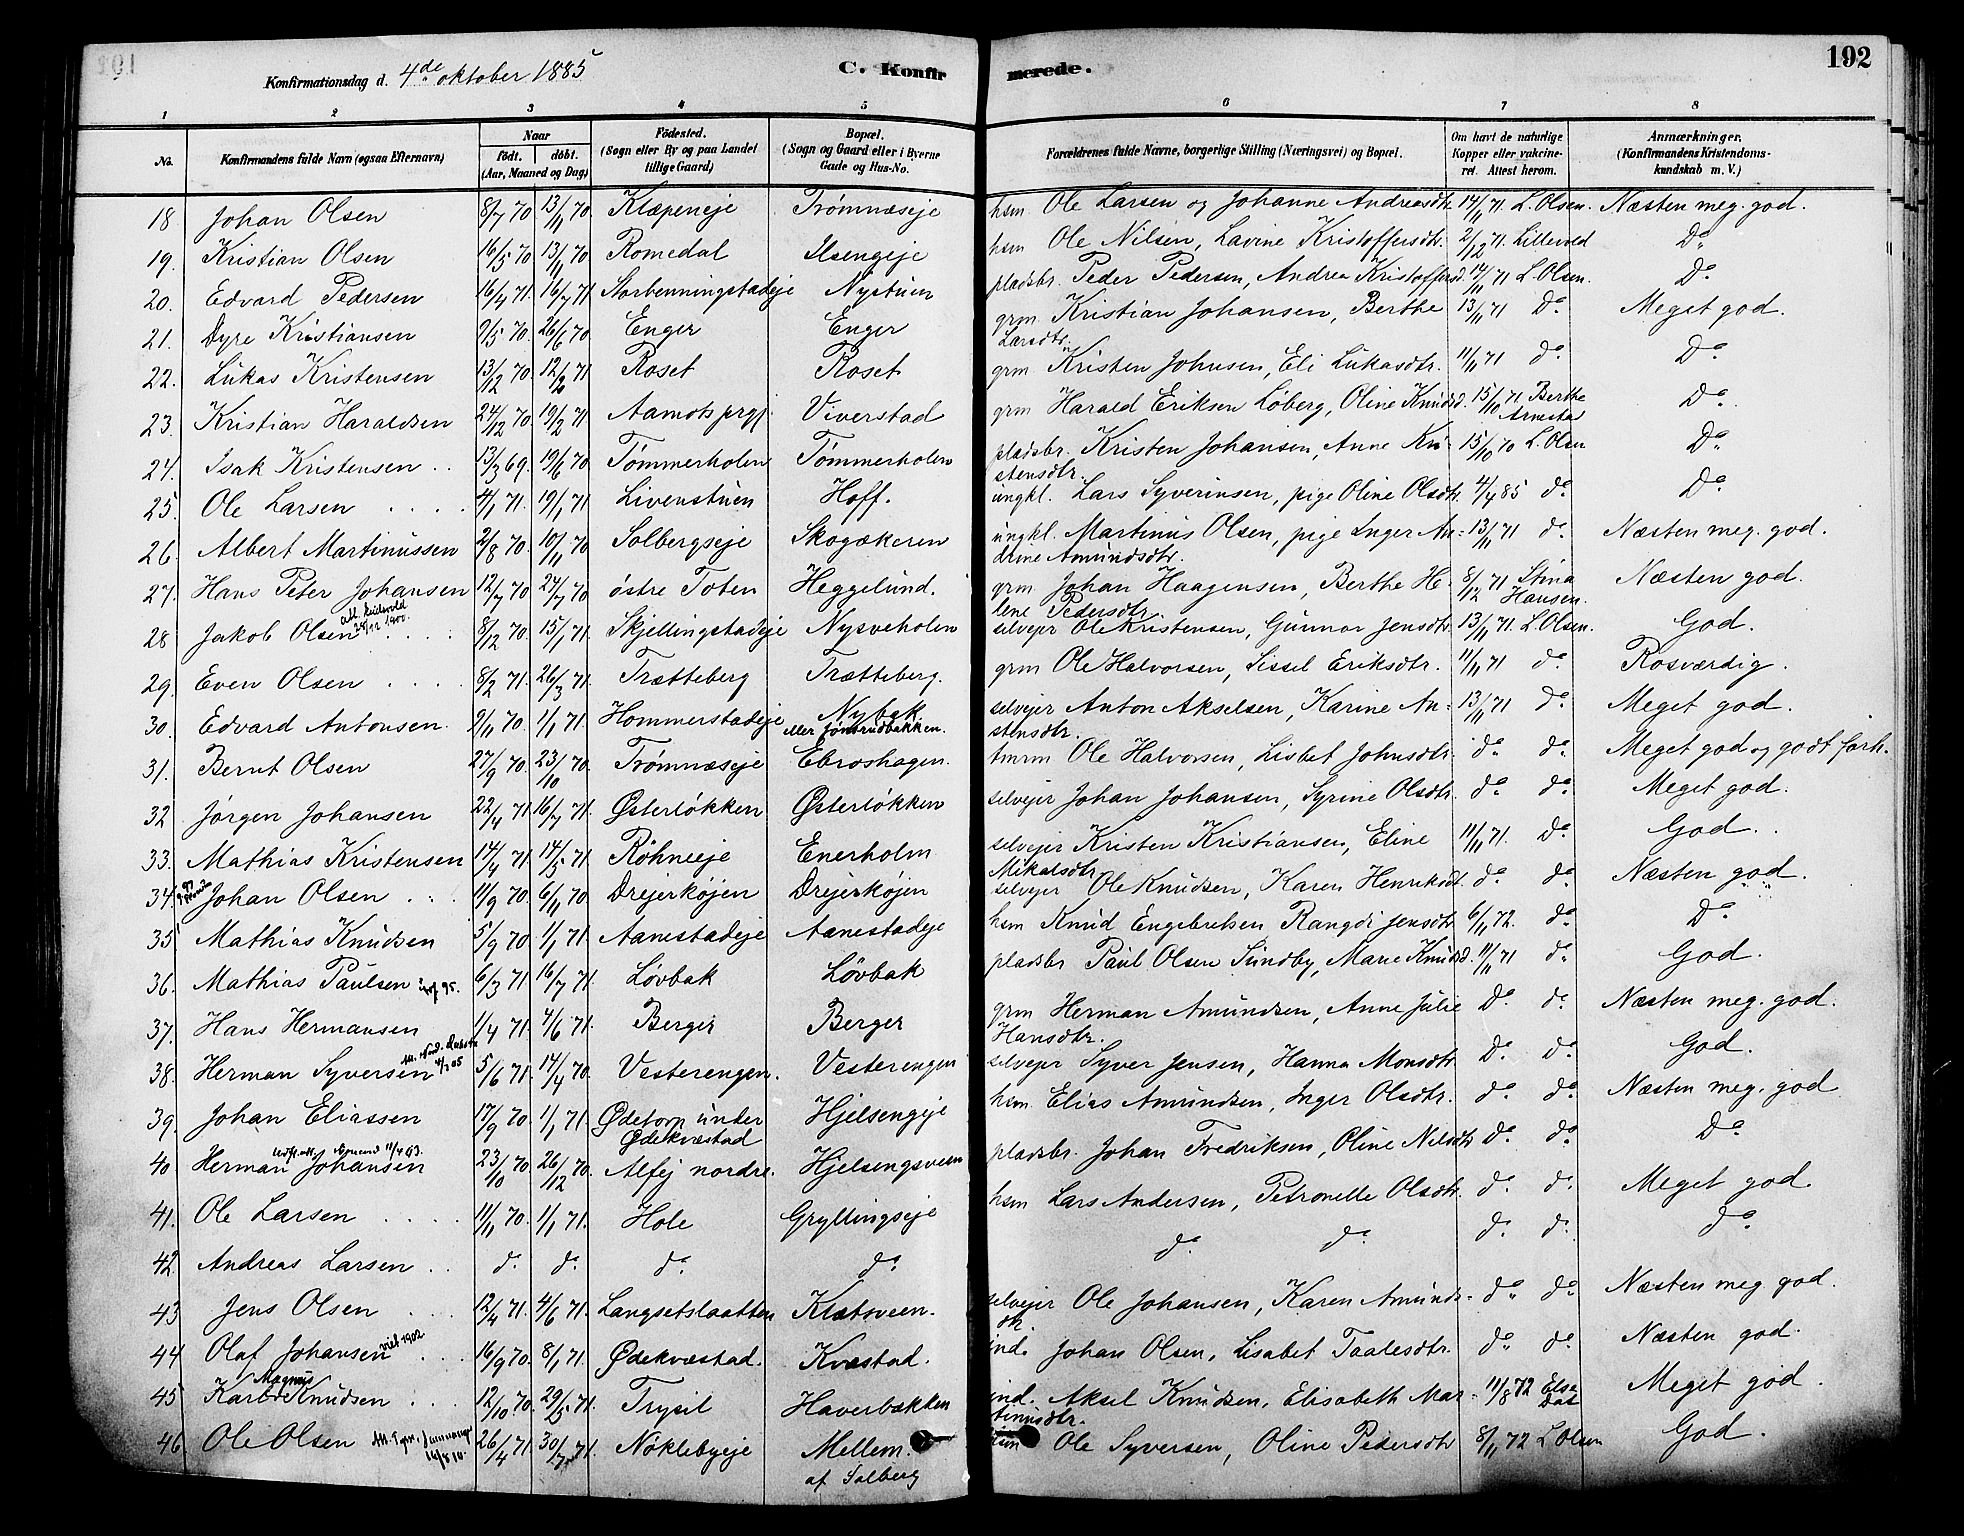 191
192
Konfirmationsdag d. 4de oktober 1885
C. Konfirmerede.
1 2 3 4 5 6 7 8
No. Konfirmandens fulde Navn (ogsaa Efternavn) Naar født. døbt. (Aar, Maaned og Dag) Fødested. (Sogn eller By og paa Landet tillige Gaard) Bopæl. (Sogn og Gaard eller i Byerne Gade og Hus-No. Forældrenes fulde Navne, borgerlige Stilling (Næringsvei) og Bopæl. Om havt de naturlige Kopper eller vakcineret. Attest herom. Anmærkninger. (Konfirmandens Kristendomskundskab m. V.)
18. Johan Olsen 8/7 70 13/11 70. Klæpeneje Trømnæseje hsm Ole Larsen og Johanne Andreasdtr. 14/11 71. L. Olsen. Næsten meg. god.
19. Kristian Olsen 16/5 70 13/11 70 Romedal Ilsengeje hsm Ole Nilsen, Lavine Kristoffersdtr. 2/12 71. Lillevold Do
20. Edvard Pedersen 16/4 71. 16/7 71 Storbenningstadeje Nystuen pladsbr. Peder Pedersen, Andrea Kristoffersd. 14/11 71 L. Olsen. Do
21. Dyre Kristiansen 9/5 70. 26/6 70 Enger Enger grm Kristian Johansen, Berthe Larsdtr. 13/11 71 Do Meget god.
22. Lukas Kristensen 13/12 70 12/2 71 Roset Roset grm Kristen Johnsen, Eli Lukasdtr. 11/11 71 do Do
23. Kristian Haraldsen 24/12 70 19/2 71 Aamots prgj. Viverstad grm Harald Eriksen Løberg, Oline Knudsd. 15/10 71 Berthe Arnestad Do
24. Isak Kristensen 13/3 69. 19/6 70 Tømmerholen Tømmerholen pladsbr. Kristen Johansen, Anne Kristensdtr. 15/10 70 L. Olsen Do
25. Ole Larsen 4/1 71. 19/1 71 Livenstuen Hoff. ungkl. Lars Syverinsen, pige Oline Olsdtr. 4/4 85 do Do
26. Albert Martinussen 2/8 70. 10/11 70 Solbergseje Skogækeren ungkl. Martinus Olsen, pige Inger Andrine Amundsdtr. 13/11 71 do Næsten meg. god.
27. Hans Peter Johansen 12/7 70 24/7 70 østre Toten Heggelund. grm Johan Haagensen, Berthe Helene Pedersdtr. 8/12 71 Stina Hansen. Næsten god.
28 Jakob Olsen 8/12 70 15/1 71. Skjellingstadeje Nysveholen selvejer Ole Kristensen, Gunnor Jensdtr. 13/11 71. L. Olsen. God.
29. Even Olsen 8/2 71. 26/3 71. Trætteberg Trætteberg. grm Ole Halvorsen, Sissel Eriksdtr. 11/11 71 do Rosværdig.
30. Edvard Antonsen. 9/11 70 1/1 71. Hommerstadeje Nybak eller Jøntrudbakken. selvejer Anton Akselsen, Karine Anstensdtr. 13/11 71 do Meget god.
31. Bernt Olsen 27/9 70. 23/10 70. Trømnæseje Ebroshagen. tmrm Ole Halvorsen, Lisbet Johnsdtr. do do Meget god og godt forh.
32 Jørgen Johansen 22/4 71. 16/7 71. Østerløkken Østerløkken selvejer Johan Johansen, Syrine Olsdtr. do do Meget god.
33. Mathias Kristensen 14/4 71. 14/5 71 Røhneeje Enerholm selvejer Kristen Kristiansen, Eline Mikalsdtr. 11/11 71. Do God.
34 Johan Olsen 11/9 70 6/11 70 Drejerkøjen Drejerkøjen selvejer Ole Knudsen, Karen Henriksdt. do do Næsten god.
35 Mathias Knudsen 5/9 70 1/1 71. Aanestadeje Aanestadeje hsm Knud Engebretsen Rangdi Jensdtr 6/11 72. do Do
36. Mathias Paulsen 6/3 71 16/7 71. Løvbak Løvbak pladsbr Paul Olsen Sundby, Marie Knudsd. 11/11 71 do God.
37. Hans Hermansen 1/4 71. 4/6 71. Berger Berger grm Herman Amundsen, Anne Julie Hansdtr. Do do Næsten meg. god.
38. Herman Syversen 5/6 71. 14/4 70. Vesterengen. Vesterengen selvejer Syver Jensen, Hanna Monsdtr. Do do God.
39. Johan Eliassen 17/9 70 1/1 71. Ødetorp under Ødekvæstad Hjelsengeje hsm Elias Amundsen, Inger Olsdtr. do do Næsten meg. god
40 Herman Johansen 23/10 70 26/12 70. Alfej nordre. Hjelsengsveen pladsbr. Johan Fredriksen, Oline Nilsdtr do do Do
41. Ole Larsen 11/11 70. 1/1 71. Hole Gryllingseje hsm Lars Andersen, Petronelle Olsdtr. do do Meget god.
42. Andreas Larsen do do do do do do do do do
43 Jens Olsen 12/4 71. 4/6 71. Langsetslaatten Klætsveen. selvejer Ole Johansen, Karen Amundsdtr. do do Næsten meg. god.
44 Olaf Johansen viet 1902 16/9 70. 8/1 71. Ødekvæstad. Kvæstad. ind. Johan Olsen, Lisabet Taalesdtr. do do Næsten god.
45 Karl Magnus Knudsen 12/10 70. 29/5 71. Trysil Haverbækken ind. Aksel Knudsen, Elisabeth Martinusdtr. 11/8 72 Else Dat Meget god.
46. Ole Olsen 26/4 71. 30/7 71. Nøklebyeje Mellem. af Solberg hsm Ole Syversen, Oline Pedersdtr 8/11 72 L Olsen God.